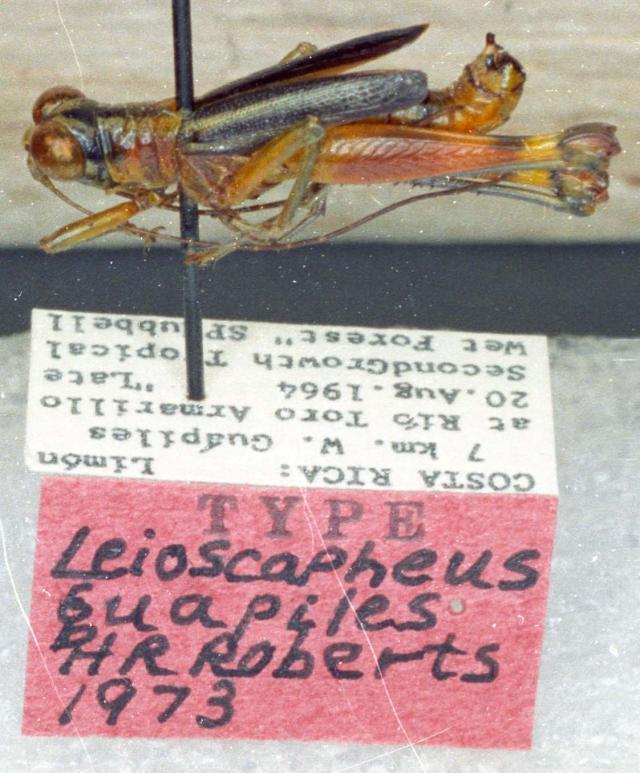 COSTA RICA: Limón
7 km. W. Guápiles
at Río Toro Amarillo
20.Aug.1964 "Late
SecondGrowth Tropical
Wet Forest" SPHubbell
TYPE
Leioscapheus
guapiles
HR Roberts
1973